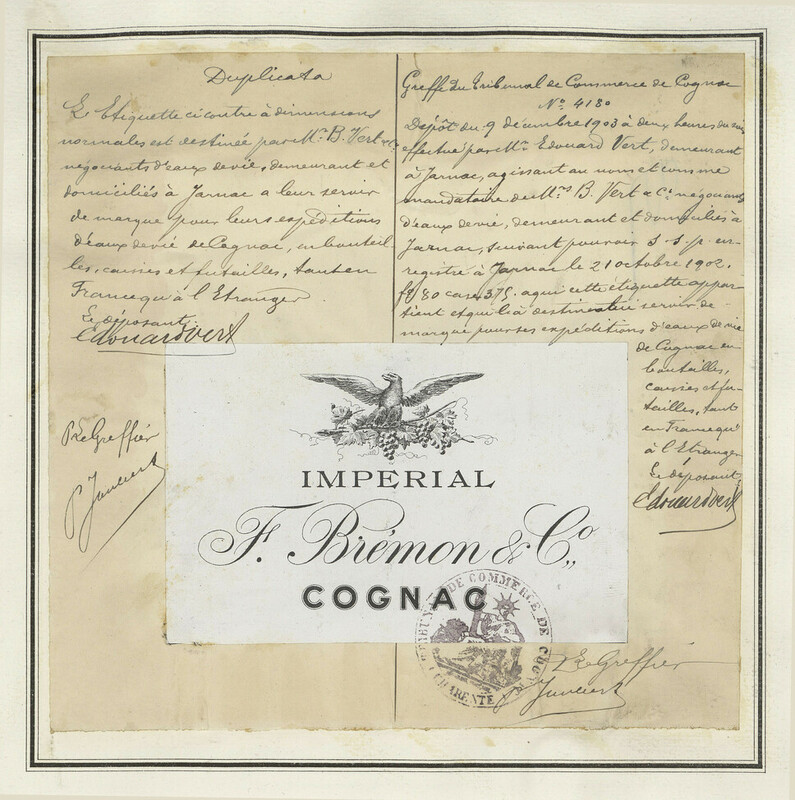 Duplicata
L'Etiquette ci contre à dimensions
normales est destinée par Mrs. B. Vert & Cie
négociants d'eaux de vie, demeurant et
domiciliés à Jarnac a leur servir
de marque pour leurs expéditions
d'eaux de vie de Cognac, en bouteil-
les, caisses et futailles, tant en
France qu'à l'Etranger.
Le déposant,
Edouard Vert
Pr Le Greffier
Greffe du Tribunal de Commerce de Cognac
No. 4180
Dépôt du 9 décembre 1903 à deux heures du soir
effectué par Mr. Edouard Vert, demeurant
à Jarnac, agissant au nom et comme
mandataire de Mrs B. Vert & Cie négociants
d'eaux de vie, demeurant et domiciliés à
Jarnac, suivant pouvoir s.s.p. en-
registré à Jarnac le 21 octobre 1902.
fo 80 case 375. a qui cette étiquette appar-
tient et qui l'a destinée à servir de
marque pour ses expéditions d'eaux de vie
de Cognac en
bouteilles,
caisses et fu-
tailles, tant
en France qu'
à l'Etranger
Le déposant,
Edouard Vert
IMPERIAL
F. Brémon & Co.,,
COGNAC
TRIBUNAL DE COMMERCE DE COGNAC
CHARENTE
Pr Le Greffier